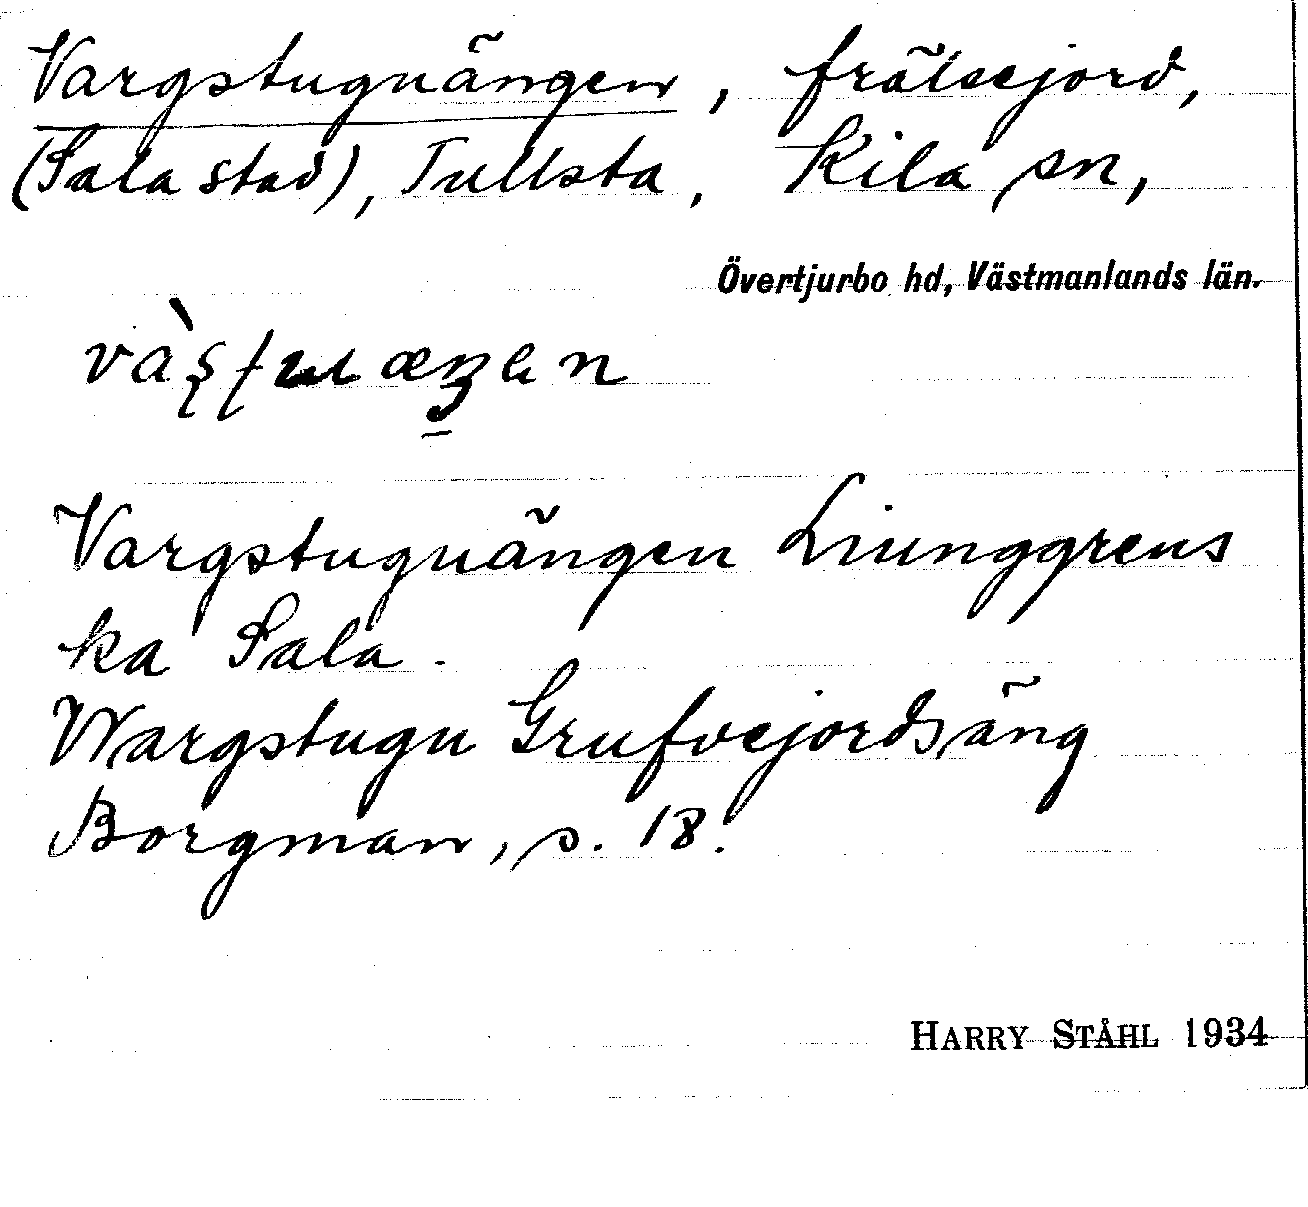 Vargstuguängen, frälsejord,
(Sala stad), Tullsta, Kila sn,
Övertjurbo hd, Västmanlands län.
Vargstuguängen Liunggrens
ka Sala.
Wargstugu Grufvejordsäng
Borgman, s. 18.
HARRY STÅHL 1934